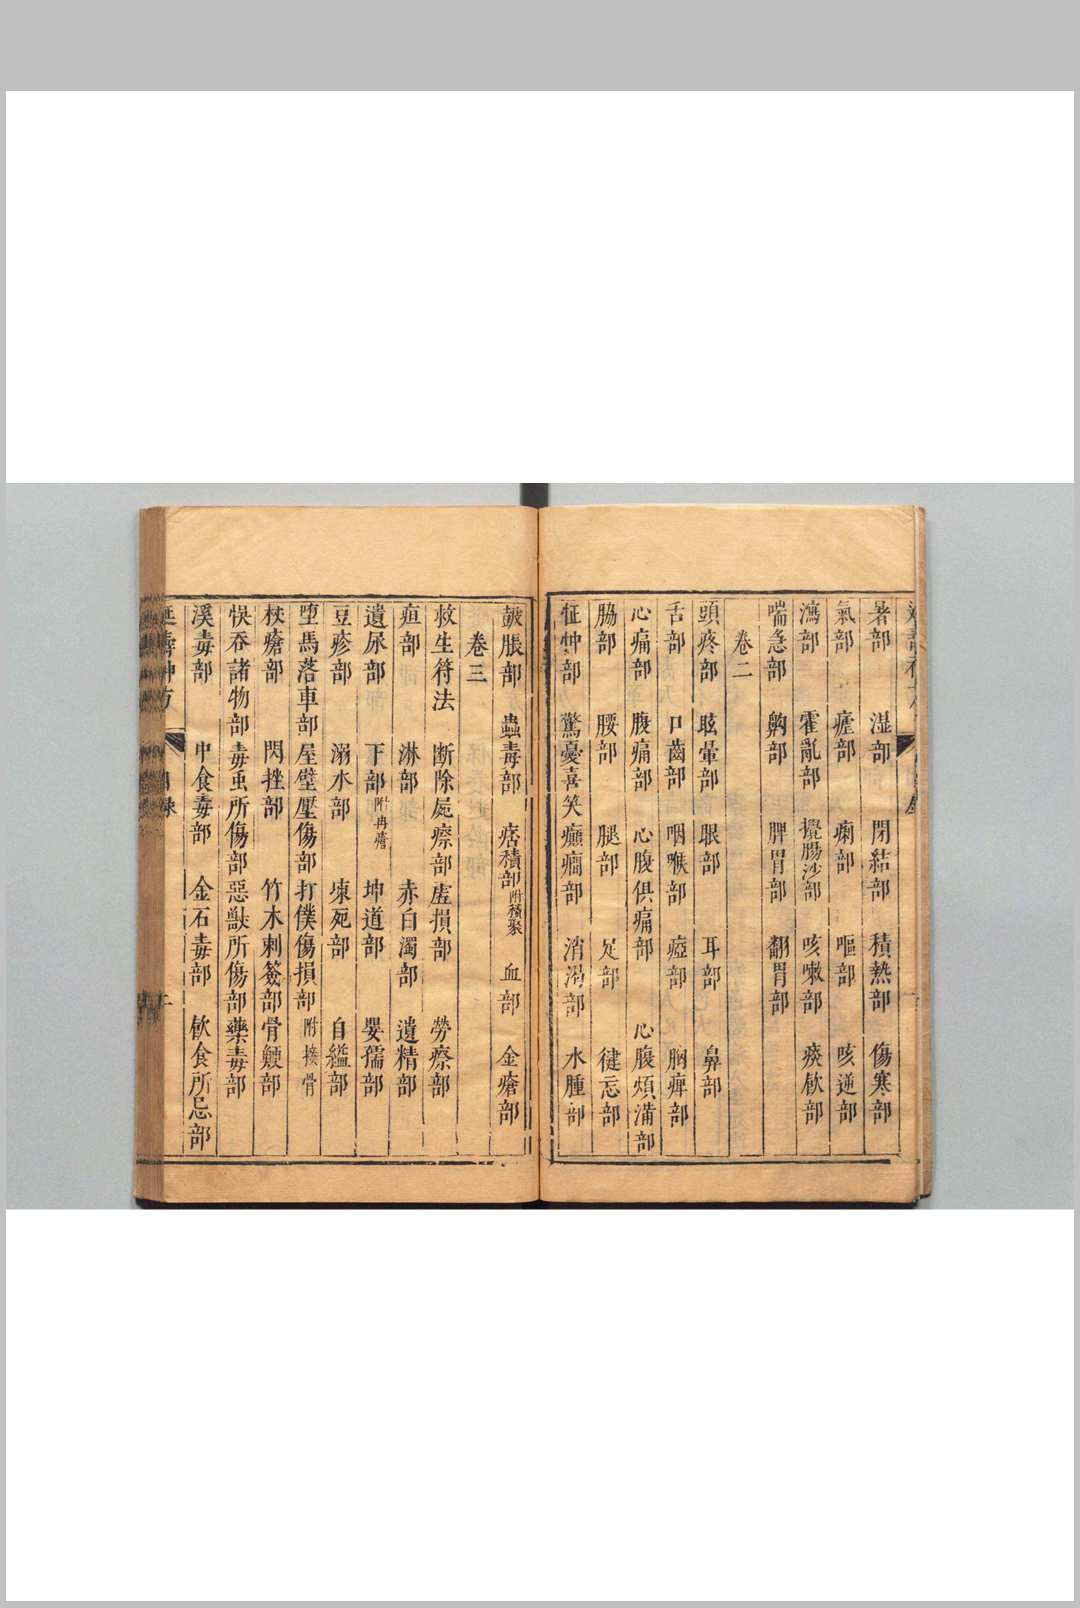 暑部 湿部 閉結部 積熱部 傷寒部
氣部 瘧部 痢部 嘔部 咳逆部
瀉部 霍亂部 攪腸沙部 咳嗽部 痰飲部
喘急部 齁部 脾胃部 翻胃部
卷二
頭疼部 眩暈部 眼部 耳部 鼻部
舌部 口齒部 咽喉部 瘂部 胸痺部
心痛部 腹痛部 心腹俱痛部 心腹煩滿部
脇部 腰部 腿部 足部 健忘部
怔忡部 驚憂喜笑癲癇部 消渴部 水腫部
皷脹部 蟲毒部 痞積部附積聚 血部 金瘡部
卷三
救生符法 断除屍瘵部 虛損部 勞瘵部
疸部 淋部 赤白濁部 遺精部
遺尿部 下部 坤道部 嬰孺部
豆疹部 溺水部 凍死部 自縊部
墮馬落車部 屋壁壓傷部 打僕傷損部附接骨
杖瘡部 閃挫部 竹木刺簽部 骨鯁部
悞吞諸物部 毒虫所傷部 惡獣所傷部 藥毒部
溪毒部 中食毒部 金石毒部 飲食所忌部
神方 目録 二